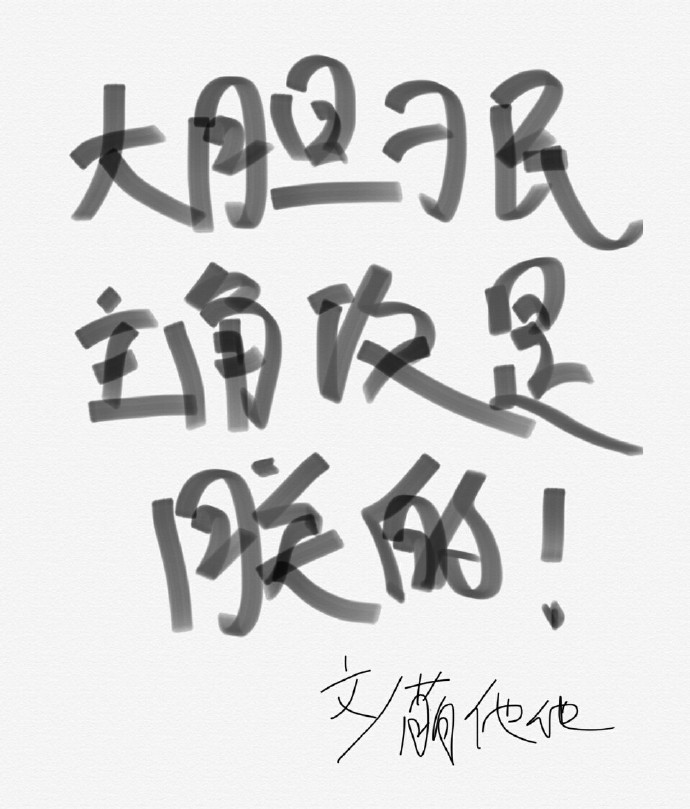 大胆刁民
主角仅是
朕的！
文/萌他他